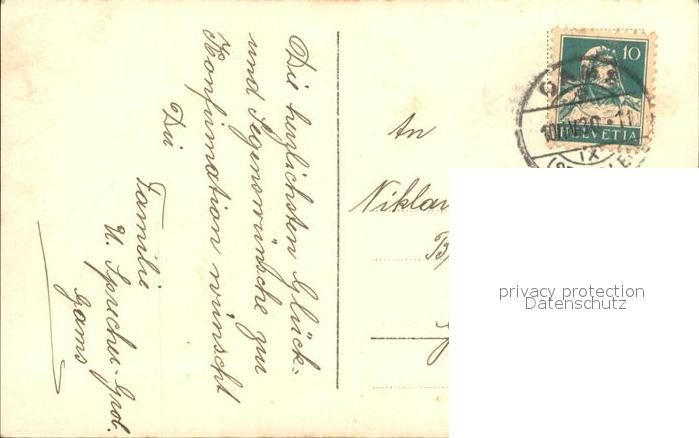 Die herzlichsten Glück-
und Segenswünsche zur
Konfirmation wünscht
Dir
Familie
U. Sprecher-Grob.
Gams
An
Niklaus
10
HELVETIA
GAMS
IX
privacy protection
Datenschutz